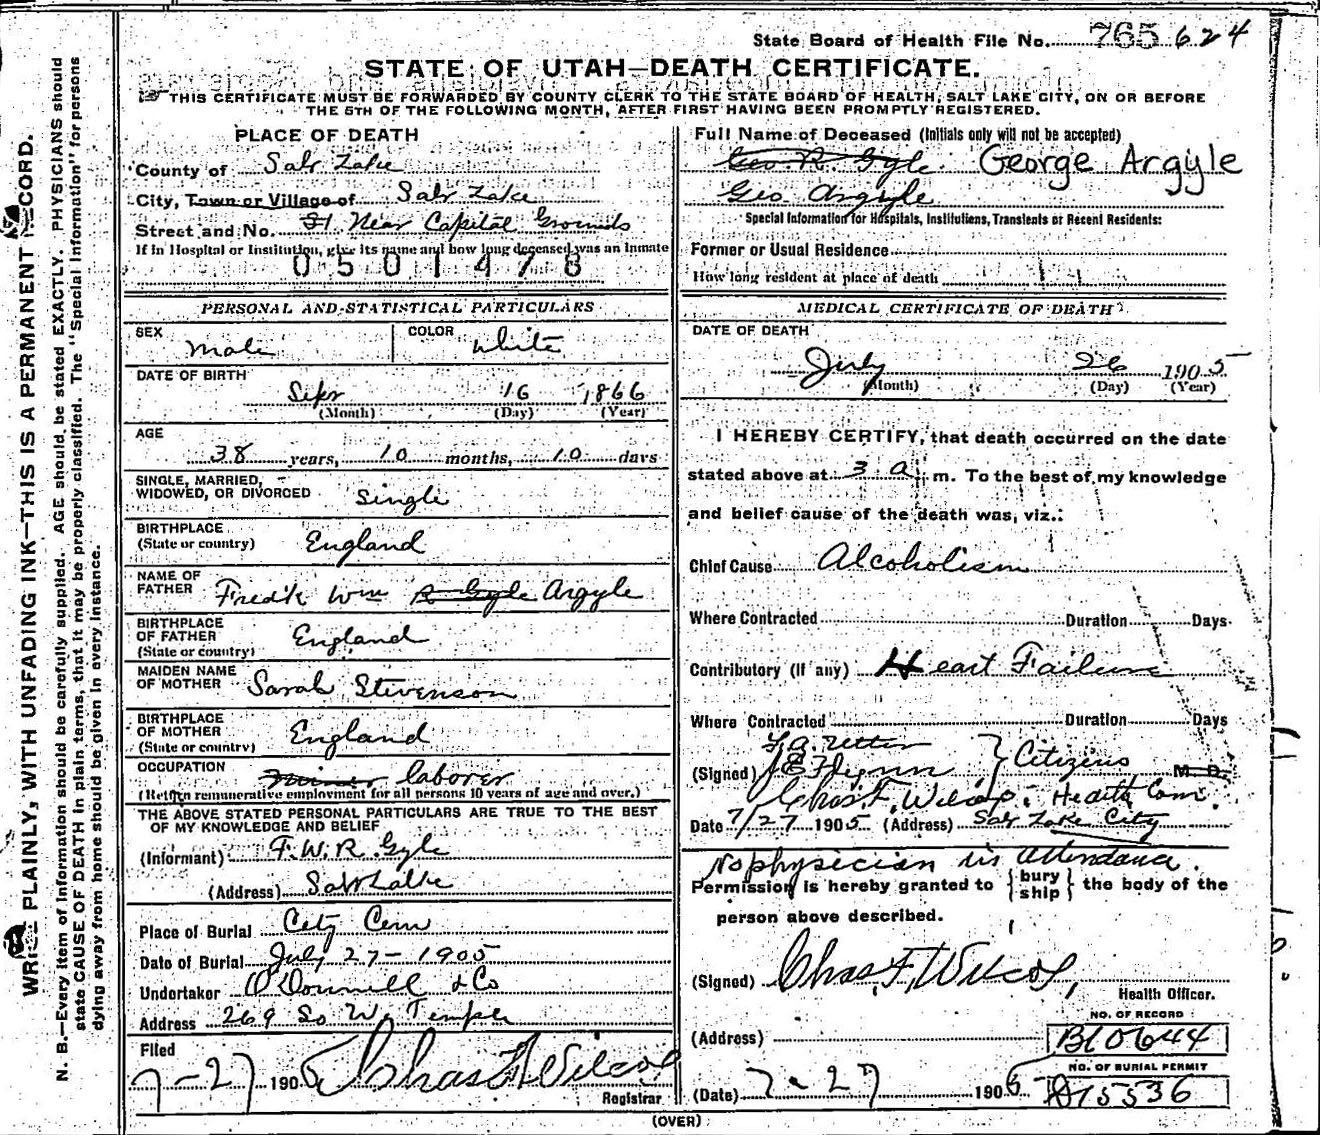 State Board of Health File No. 765 624
STATE OF UTAH—DEATH CERTIFICATE.
THIS CERTIFICATE MUST BE FORWARDED BY COUNTY CLERK TO THE STATE BOARD OF HEALTH, SALT LAKE CITY, ON OR BEFORE
THE 5TH OF THE FOLLOWING MONTH, AFTER FIRST HAVING BEEN PROMPTLY REGISTERED.
WRITE PLAINLY, WITH UNFADING INK—THIS IS A PERMANENT RECORD.
N. B.—Every item of information should be carefully supplied. AGE should be stated EXACTLY. PHYSICIANS should
state CAUSE OF DEATH in plain terms, that it may be properly classified. The "Special Information" for persons
dying away from home should be given in every instance.
PLACE OF DEATH
County of Salt Lake
City, Town or Village of Salt Lake
Street and No. Near Capital Grounds
If in Hospital or Institution, give its name and how long deceased was an inmate
0501478
PERSONAL AND STATISTICAL PARTICULARS
SEX Male COLOR White
DATE OF BIRTH
Sept 16 1866
(Month) (Day) (Year)
AGE
38 years, 10 months, 10 days
SINGLE, MARRIED,
WIDOWED, OR DIVORCED Single
BIRTHPLACE
(State or country) England
NAME OF
FATHER Fredk Wm R Gyle Argyle
BIRTHPLACE
OF FATHER
(State or country) England
MAIDEN NAME
OF MOTHER Sarah Stevenson
BIRTHPLACE
OF MOTHER
(State or country) England
OCCUPATION laborer
(Return remunerative employment for all persons 10 years of age and over.)
THE ABOVE STATED PERSONAL PARTICULARS ARE TRUE TO THE BEST
OF MY KNOWLEDGE AND BELIEF
(Informant) F. W. R. Gyle
(Address) Salt Lake
Place of Burial City Cem
Date of Burial July 27 - 1905
Undertaker O'Donnell & Co
Address 269 So W. Temple
Filed
7-27 1905 Chas F Wilcox
Registrar
Full Name of Deceased (Initials only will not be accepted)
Geo. R. Gyle. George Argyle
Geo Argyle
Special Information for Hospitals, Institutions, Transients or Recent Residents:
Former or Usual Residence
How long resident at place of death
MEDICAL CERTIFICATE OF DEATH
DATE OF DEATH
July 26 1905
(Month) (Day) (Year)
I HEREBY CERTIFY, that death occurred on the date
stated above at 3 a. m. To the best of my knowledge
and belief cause of the death was, viz.:
Chief Cause Alcoholism
Where Contracted Duration Days
Contributory (if any) Heart Failure
Where Contracted Duration Days
(Signed) J E Flynn } Citizens M. D.
Chas. F. Wilcox. Health Com.
Date 7/27 1905 (Address) Salt Lake City
No physician in attendance.
Permission is hereby granted to {bury ship} the body of the
person above described.
(Signed) Chas. F. Wilcox,
Health Officer.
NO. OF RECORD
(Address) B10644
NO. OF BURIAL PERMIT
(Date) 7-27 1905 D15536
(OVER)